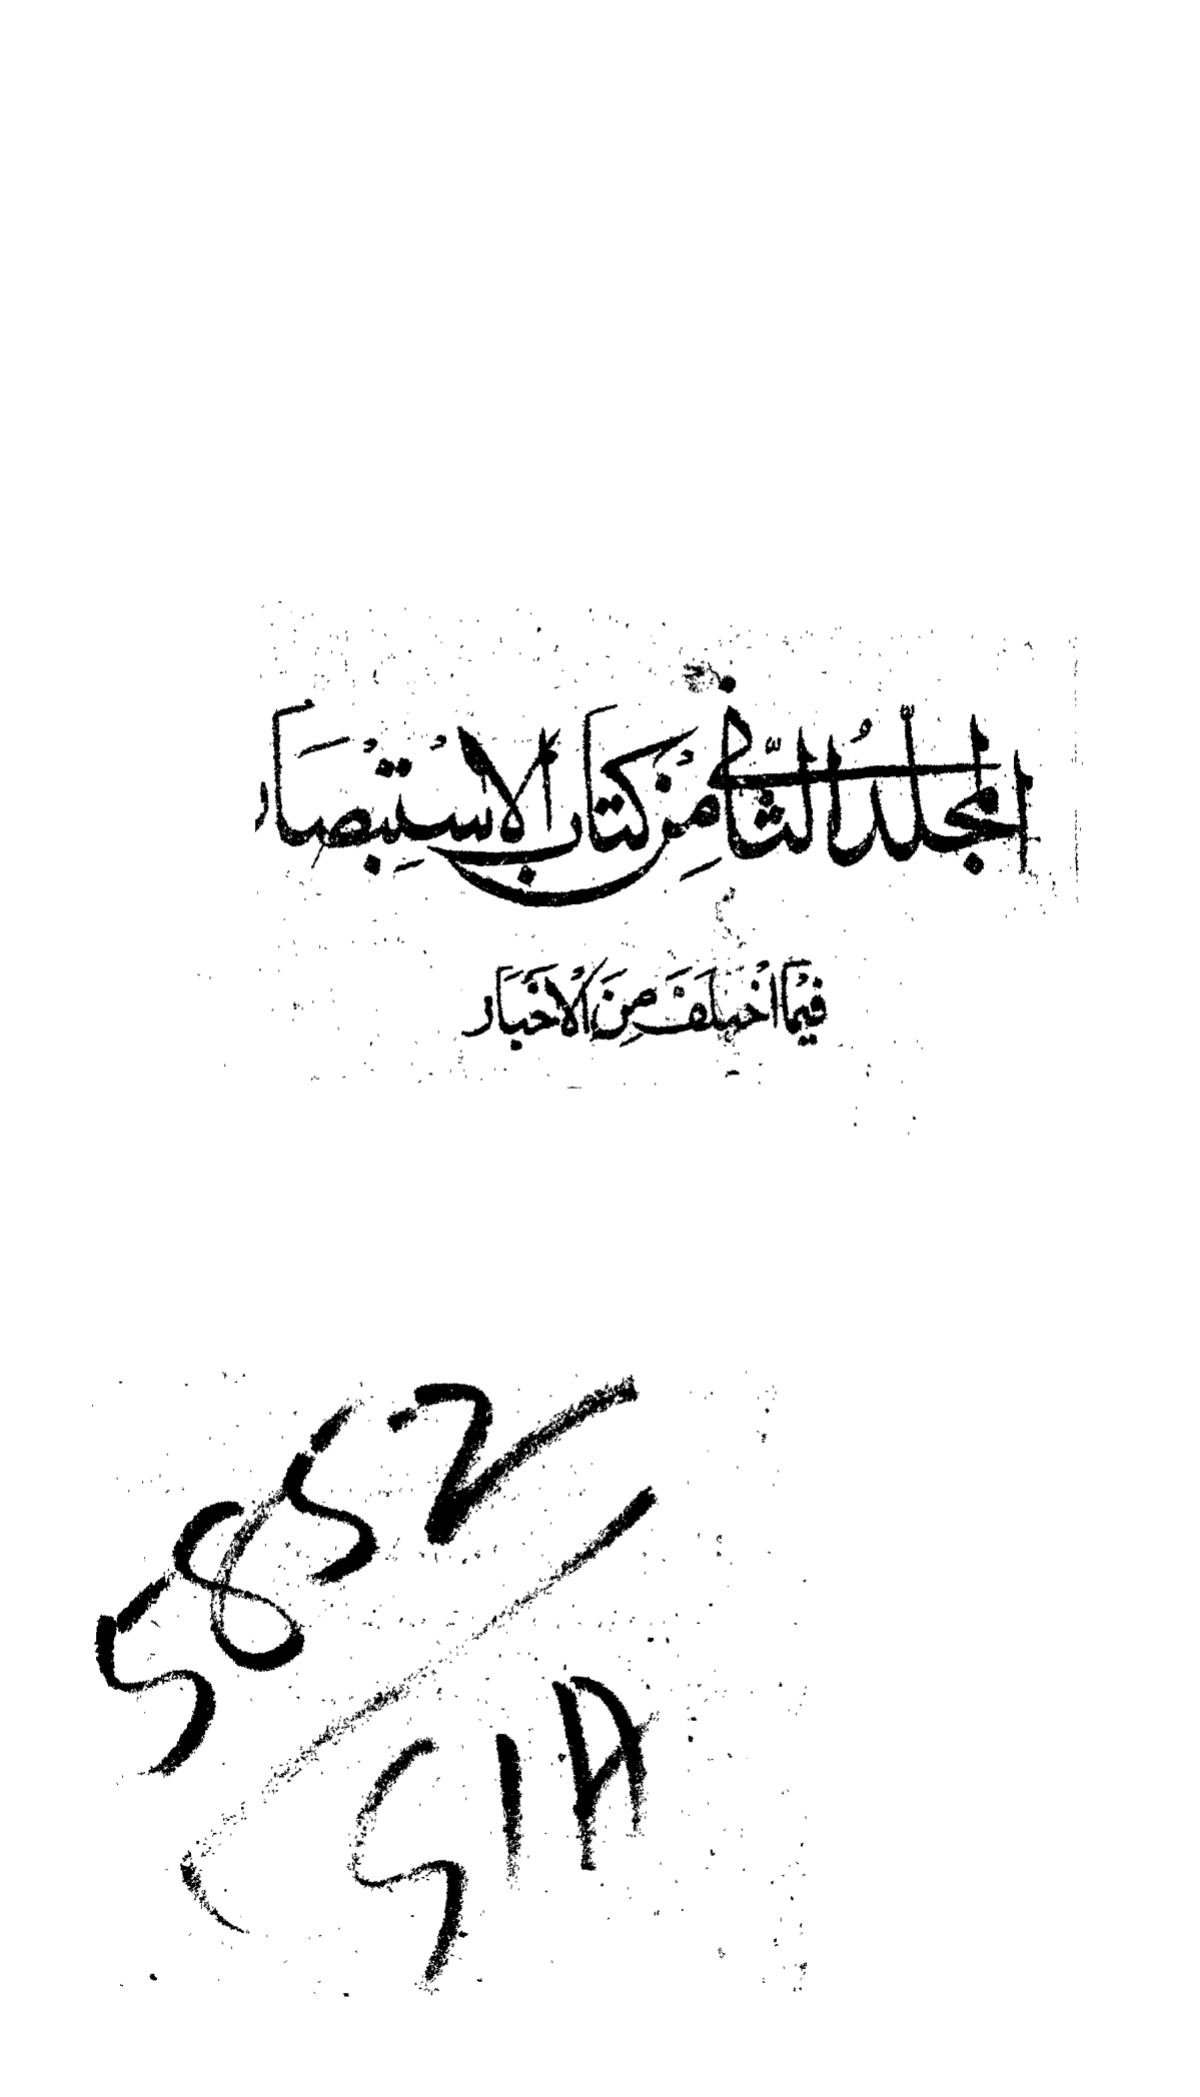 المجلدُ الثّاني مِنْ كتاب الاسْتِبْصَار
فيْمَا اخْتلَفَ مِنَ الْأَخْبَار
5852
SIA